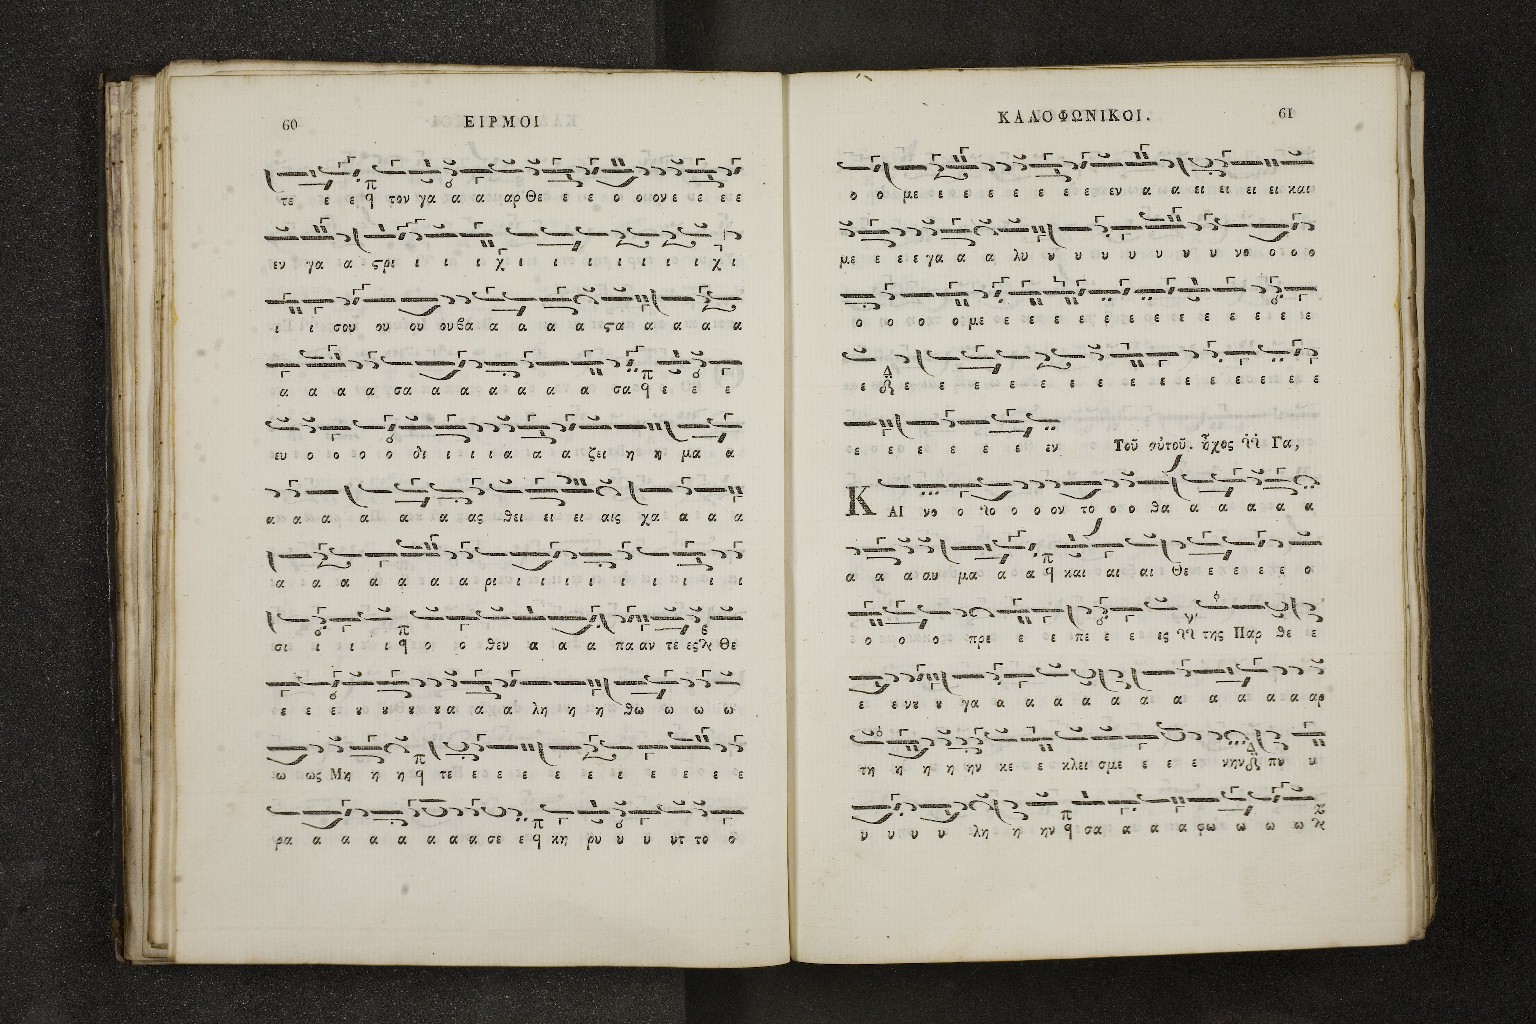 60 ΕΙΡΜΟΙ
τε ε ε τον γα α α αρ Θε ε ε ο ο ον ε ε ε ε
εν γα α ςρι ι ι ι χ ι ι ι ι ι ι ι χ ι
ι ι σου ου ου ου βα α α α α ςα α α α α
α α α α σα α α α α α α σα ε ε ε
ευ ο ο ο ο δι ι ι ι α α α ζει η η μα α
α α α α α α α ας θει ει ει αις χα α α α
α α α α α α α ρι ι ι ι ι ι ι ι ι
σι ι ι ι ο ο θεν α α α πα αν τε ες Θε
ε ε ε υ υ υ υα α α λη η η θω ω ω ω
ω ως Μη η η τε ε ε ε ε ε ε ε ε ε
ρα α α α α α α α σε ε κη ρυ υ υ υτ το ο
ΚΑΛΟΦΩΝΙΚΟΙ. 61
ο ο με ε ε ε ε ε ε ε εν α α ει ει ει ει και
με ε ε ε γα α α λυ υ υ υ υ υ υ υ νο ο ο ο
ο ο ο ο με ε ε ε ε ε ε ε ε ε ε ε ε ε
ε ε ε ε ε ε ε ε ε ε ε ε ε ε ε ε
ε ε ε ε ε ε εν Τοῦ αὐτοῦ. ἦχος Γα,
ΚΑΙ νο ο ιο ο ο ον το ο ο θα α α α α α
α α α αυ μα α α και αι αι Θε ε ε ε ε ο
ο ο ο πρε ε ε πε ε ε ες της Παρ θε ε
ε ε νυ υ γα α α α α α α α α α α α αρ
τη η η η ην κε ε κλει σμε ε ε ε νην πυ υ
υ υ υ υ λη η ην σα α α α φω ω ω ω